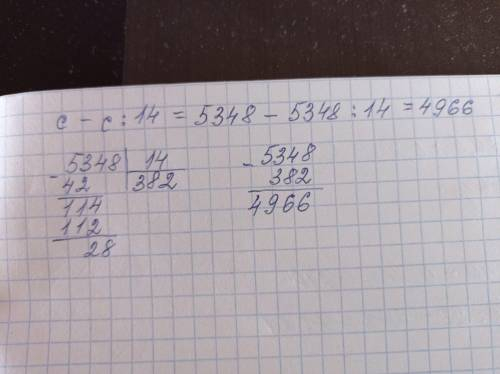 c - c : 14 = 5348 - 5348 : 14 = 4966
- 5348 | 14
42 | 382
114
112
28
- 5348
382
4966